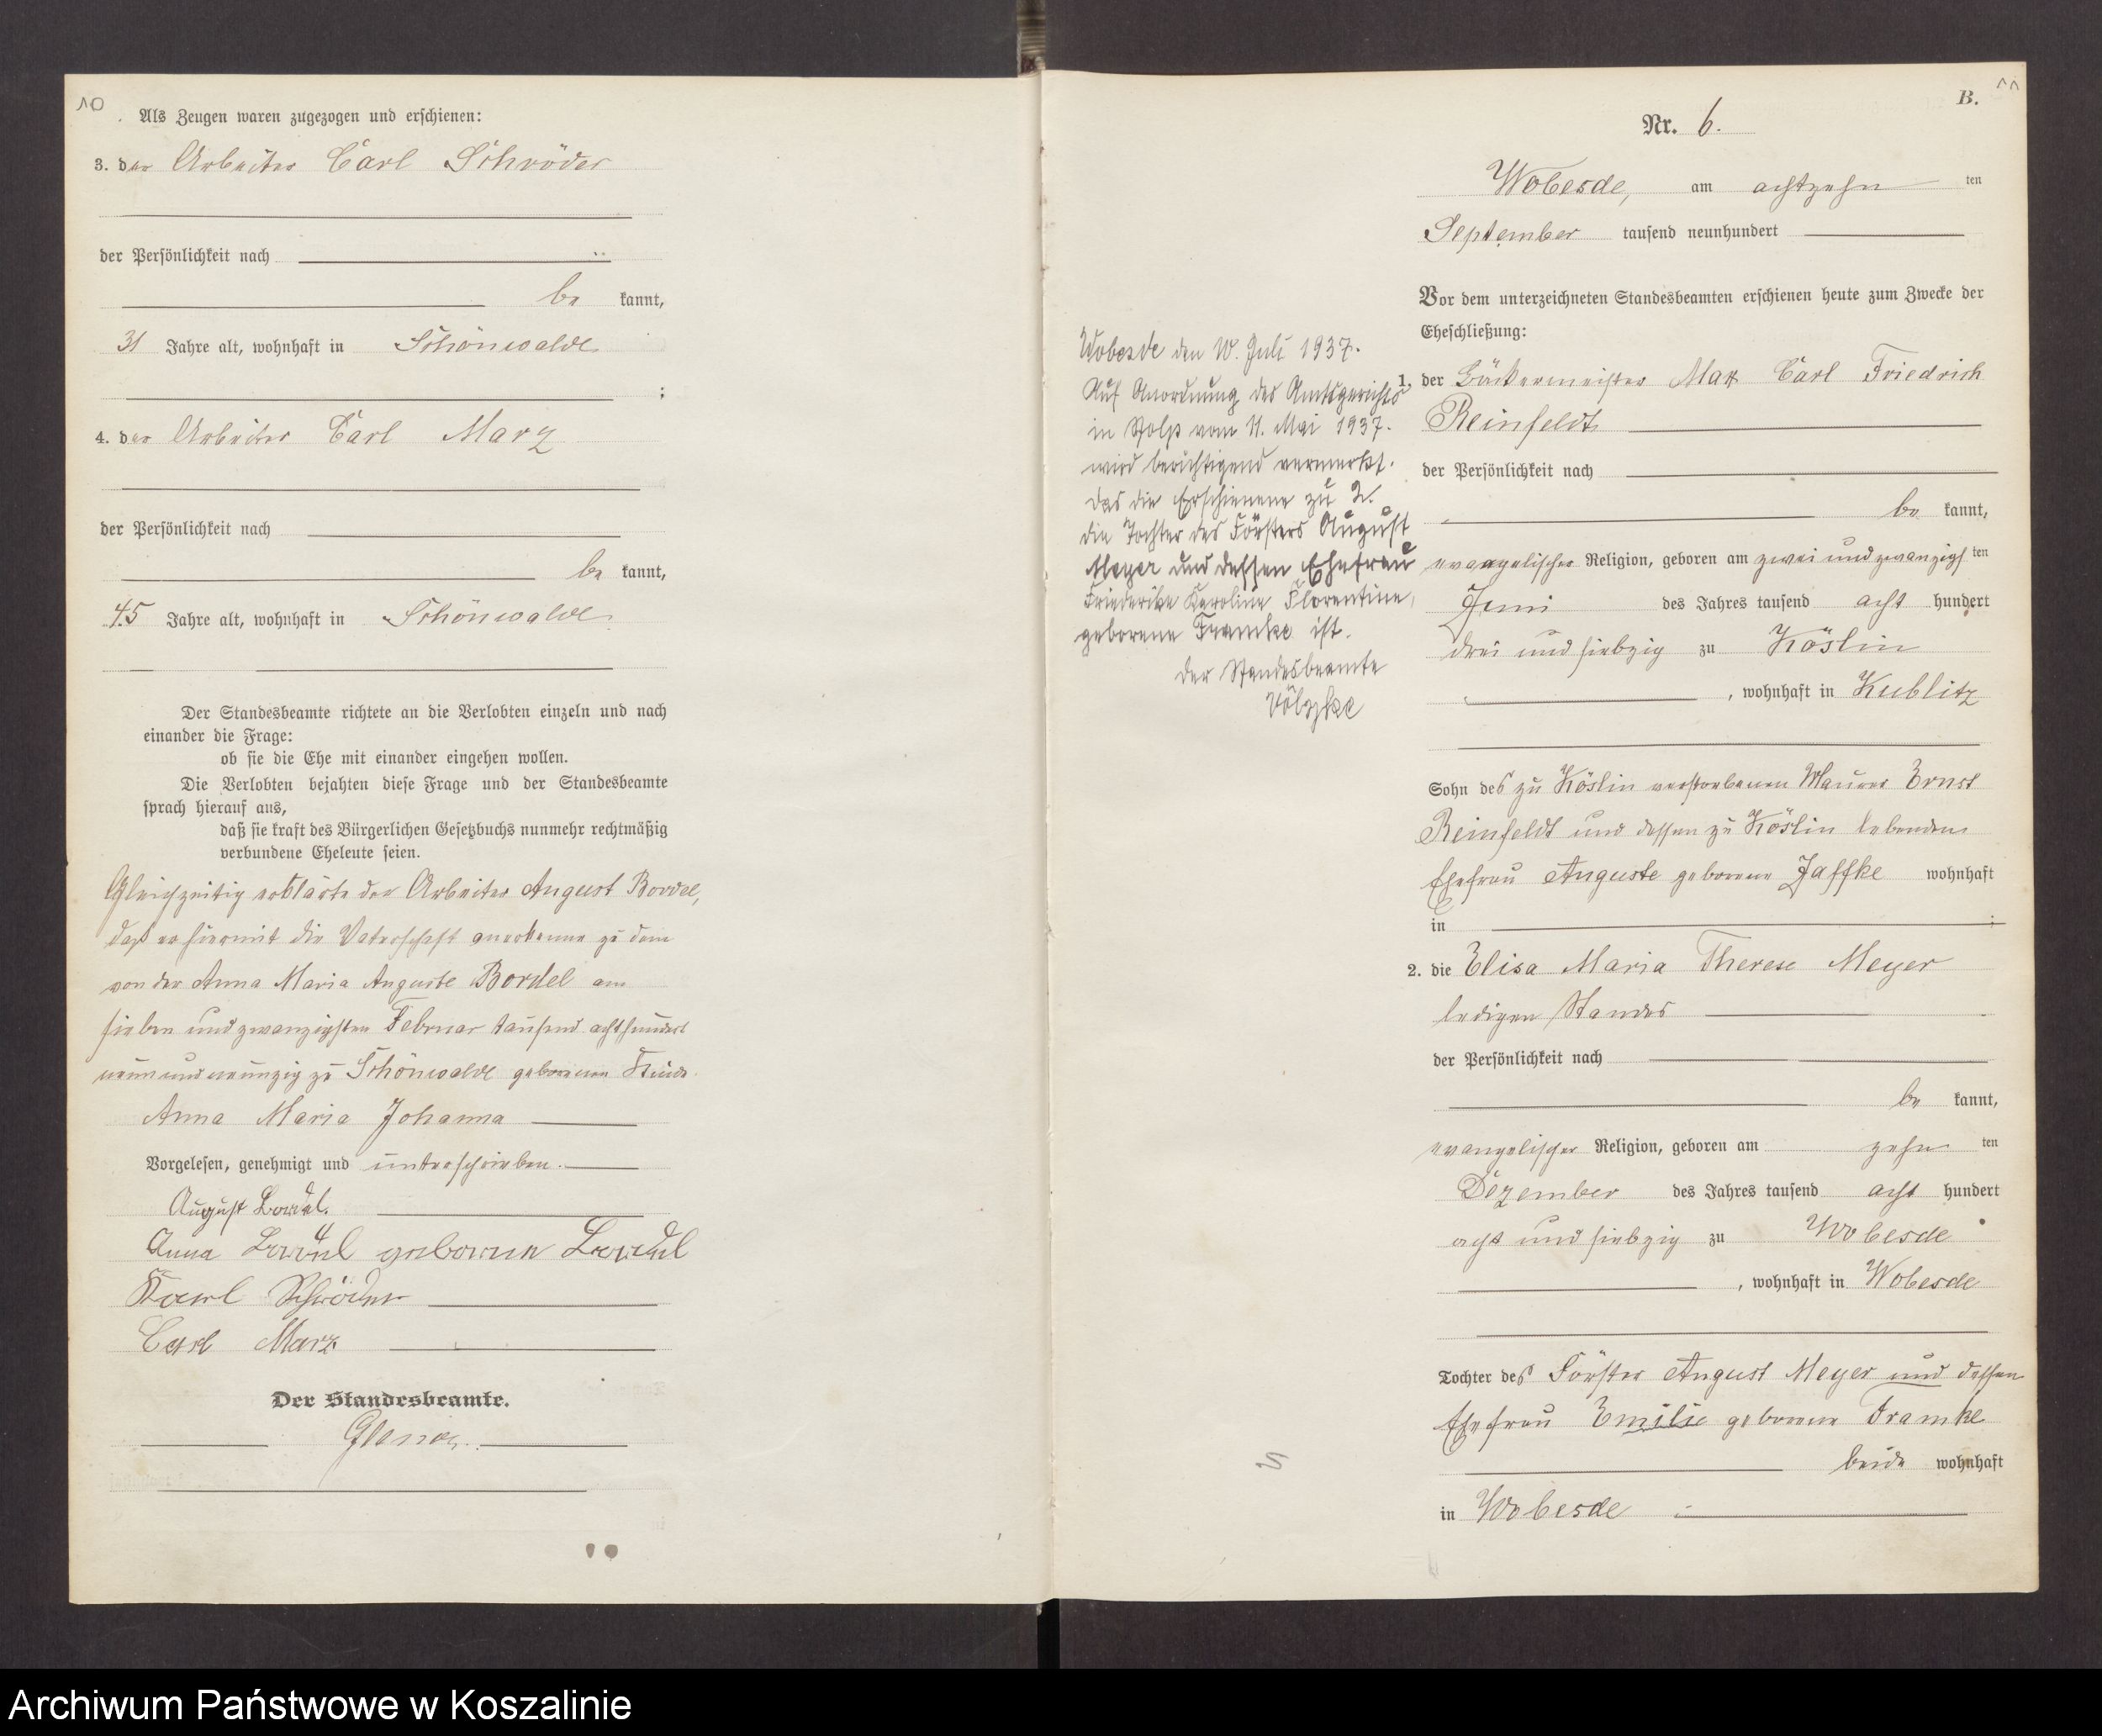 10
Als Zeugen waren zugezogen und erschienen:
3. der Arbeiter Carl Schröder
der Persönlichkeit nach
be kannt,
31 Jahre alt, wohnhaft in Schönwalde
;
4. der Arbeiter Carl Marz
der Persönlichkeit nach
be kannt,
45 Jahre alt, wohnhaft in Schönwalde
Der Standesbeamte richtete an die Verlobten einzeln und nach
einander die Frage:
ob sie die Ehe mit einander eingehen wollen.
Die Verlobten bejahten diese Frage und der Standesbeamte
sprach hierauf aus,
daß sie kraft des Bürgerlichen Gesetzbuchs nunmehr rechtmäßig
verbundene Eheleute seien.
Gleichzeitig erklärte der Arbeiter August Bordel,
daß er hiermit die Vaterschaft anerkenne zu dem
von der Anna Maria Auguste Bordel am
sieben und zwanzigsten Februar tausend achthundert
neun und neunzig zu Schönwalde geborenen Kinde
Anna Maria Johanna
Vorgelesen, genehmigt und unterschrieben.
August Bordel.
Anna Bordel geborene Bordel
Karl Schröder
Carl Marz
Der Standesbeamte.
B. 11
Nr. 6.
Wobesde, am achtzehn ten
September tausend neunhundert
Vor dem unterzeichneten Standesbeamten erschienen heute zum Zwecke der
Eheschließung:
1. der Bäckermeister Max Carl Friedrich
Reinfeldt
der Persönlichkeit nach
be kannt,
evangelischer Religion, geboren am zwei und zwanzigs ten
Juni des Jahres tausend acht hundert
drei und siebzig zu Köslin
, wohnhaft in Kublitz
Sohn des zu Köslin verstorbenen Maurer Ernst
Reinfeldt und dessen zu Köslin lebenden
Ehefrau Auguste geborene Jaffke wohnhaft
in ;
2. die Elisa Maria Therese Meyer
ledigen Standes
der Persönlichkeit nach
be kannt,
evangelischer Religion, geboren am zehn ten
Dezember des Jahres tausend acht hundert
acht und siebzig zu Wobesde
, wohnhaft in Wobesde
Tochter des Förster August Meyer und dessen
Ehefrau Emilie geborene Framke
beide wohnhaft
in Wobesde
Wobesde den 10. Juli 1937.
Auf Anordnung des Amtsgerichts
in Stolp vom 11. Mai 1937.
wird berichtigend vermerkt.
das die Erschienene zu 2.
die Tochter des Försters August
Meyer und dessen Ehefrau
Friederike Karoline Florentine,
geborene Framke ist.
Der Standesbeamte
Völzke
Archiwum Państwowe w Koszalinie